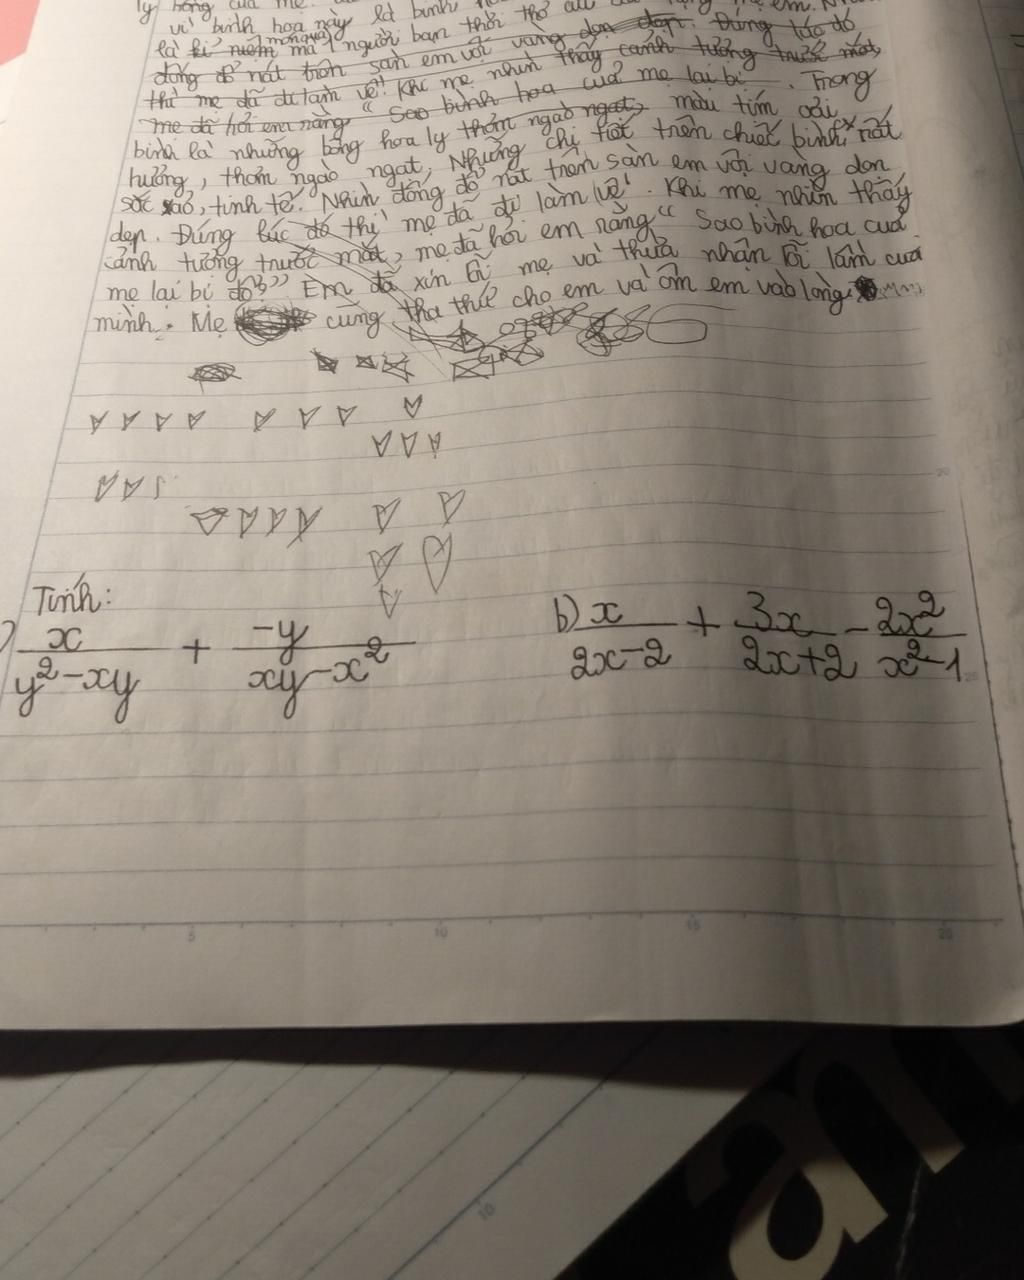 ly bông của mẹ.
vì bình hoa này là bình
là kỉ niệm mà 1 người bạn thời thơ ấu
món quà
đống đổ nát trên sàn em vội vàng dọn dẹp. Đúng lúc đó
thì mẹ đã đi làm về! Khi mẹ nhìn thấy cảnh tưởng trước mắt,
mẹ đã hỏi em rằng "Sao bình hoa của mẹ lại bị. Trong
bình là những bông hoa ly thơm ngào ngạt, màu tím oải
hưởng, thơm ngào ngạt, Những chị tiết trên chiếc bình rất
sắc xảo, tinh tế. Nhìn đống đổ nát trên sàn em vội vàng dọn
dẹp. Đúng lúc đó thì mẹ đã đi làm về!. Khi mẹ nhìn thấy
cảnh tưởng trước mắt, mẹ đã hỏi em rằng "Sao bình hoa của
mẹ lại bị đổ?" Em đã xin lỗi mẹ và thừa nhận lỗi lầm của
mình. Mẹ cũng tha thứ cho em và ôm em vào lòng
Tính:
) x/(y²-xy) + -y/(xy-x²)
b) x/(2x-2) + 3x/(2x+2) - 2x²/(x²-1)
5 10 15 20
20
25
10
an